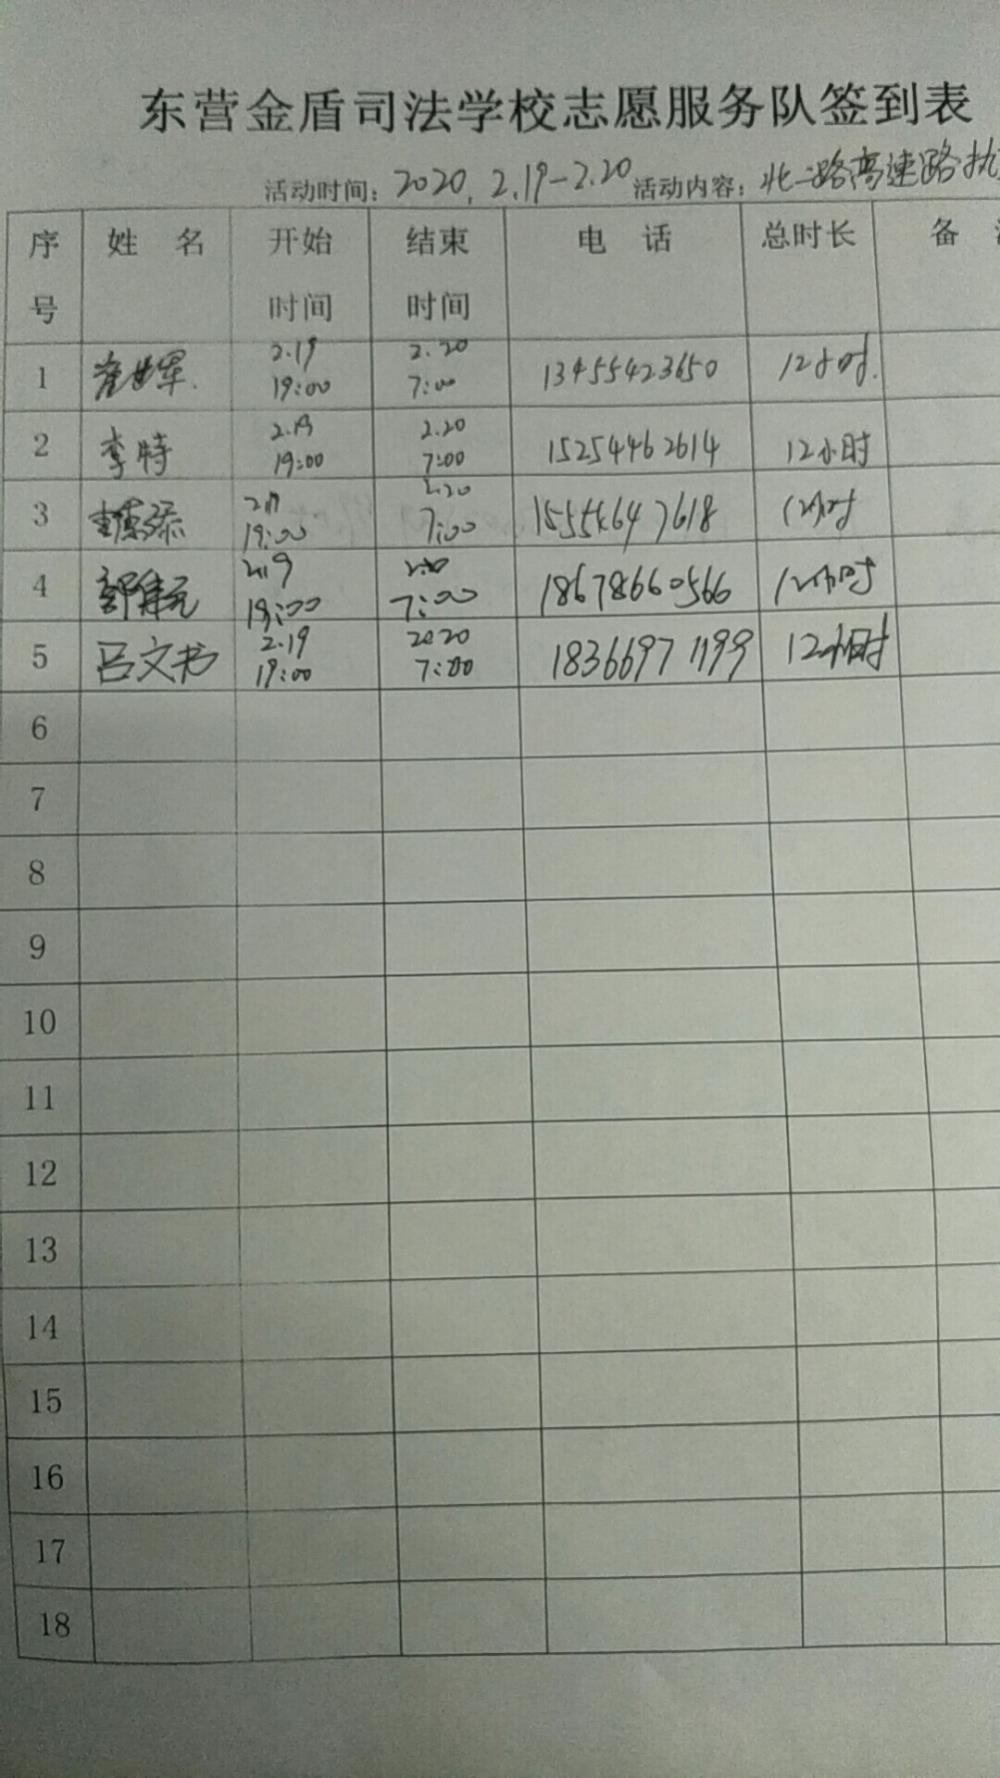 东营金盾司法学校志愿服务队签到表
活动时间：2020，2.19-2.20 活动内容：北二路高速路执
序号 姓 名 开始时间 结束时间 电 话 总时长 备
1 2.19 19:00 2.20 7:00 13455423650 12小时.
2 李特 2.19 19:00 2.20 7:00 15254462614 12小时
3 2.19 19:00 2.20 7:00 12小时
4 2.19 19:00 2.20 7:00 18678660566 12小时
5 吕文书 2.19 19:00 2020 7:00 18366971199 12小时
6
7
8
9
10
11
12
13
14
15
16
17
18